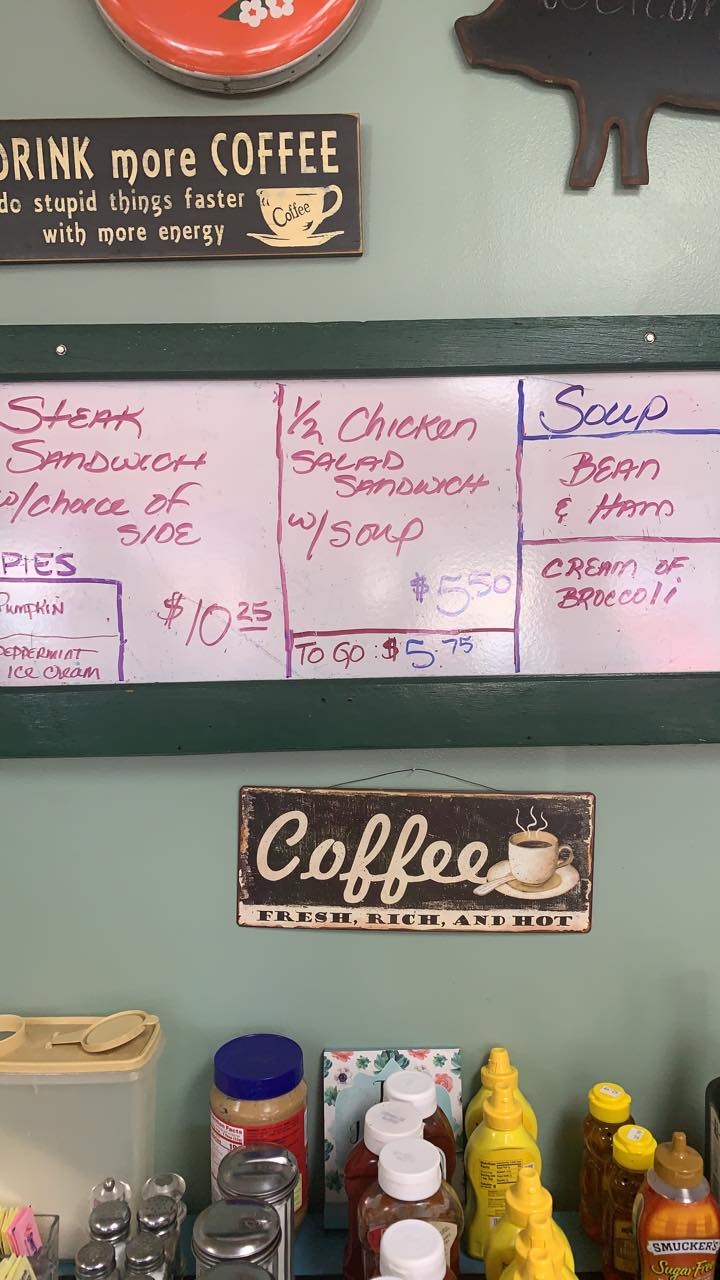 DRINK more COFFEE
do stupid things faster
with more energy
Coffee
STEAK
SANDWICH
w/choice of
SIDE
$10.25
PIES
PUMPKIN
PEPPERMINT
ICE CREAM
1/2 Chicken
SALAD
SANDWICH
w/SOUP
$5.50
TO GO: $5.75
SOUP
BEAN
& HAM
CREAM OF
BROCCOLI
Coffee
FRESH, RICH, AND HOT
SMUCKER'S
Sugar Free